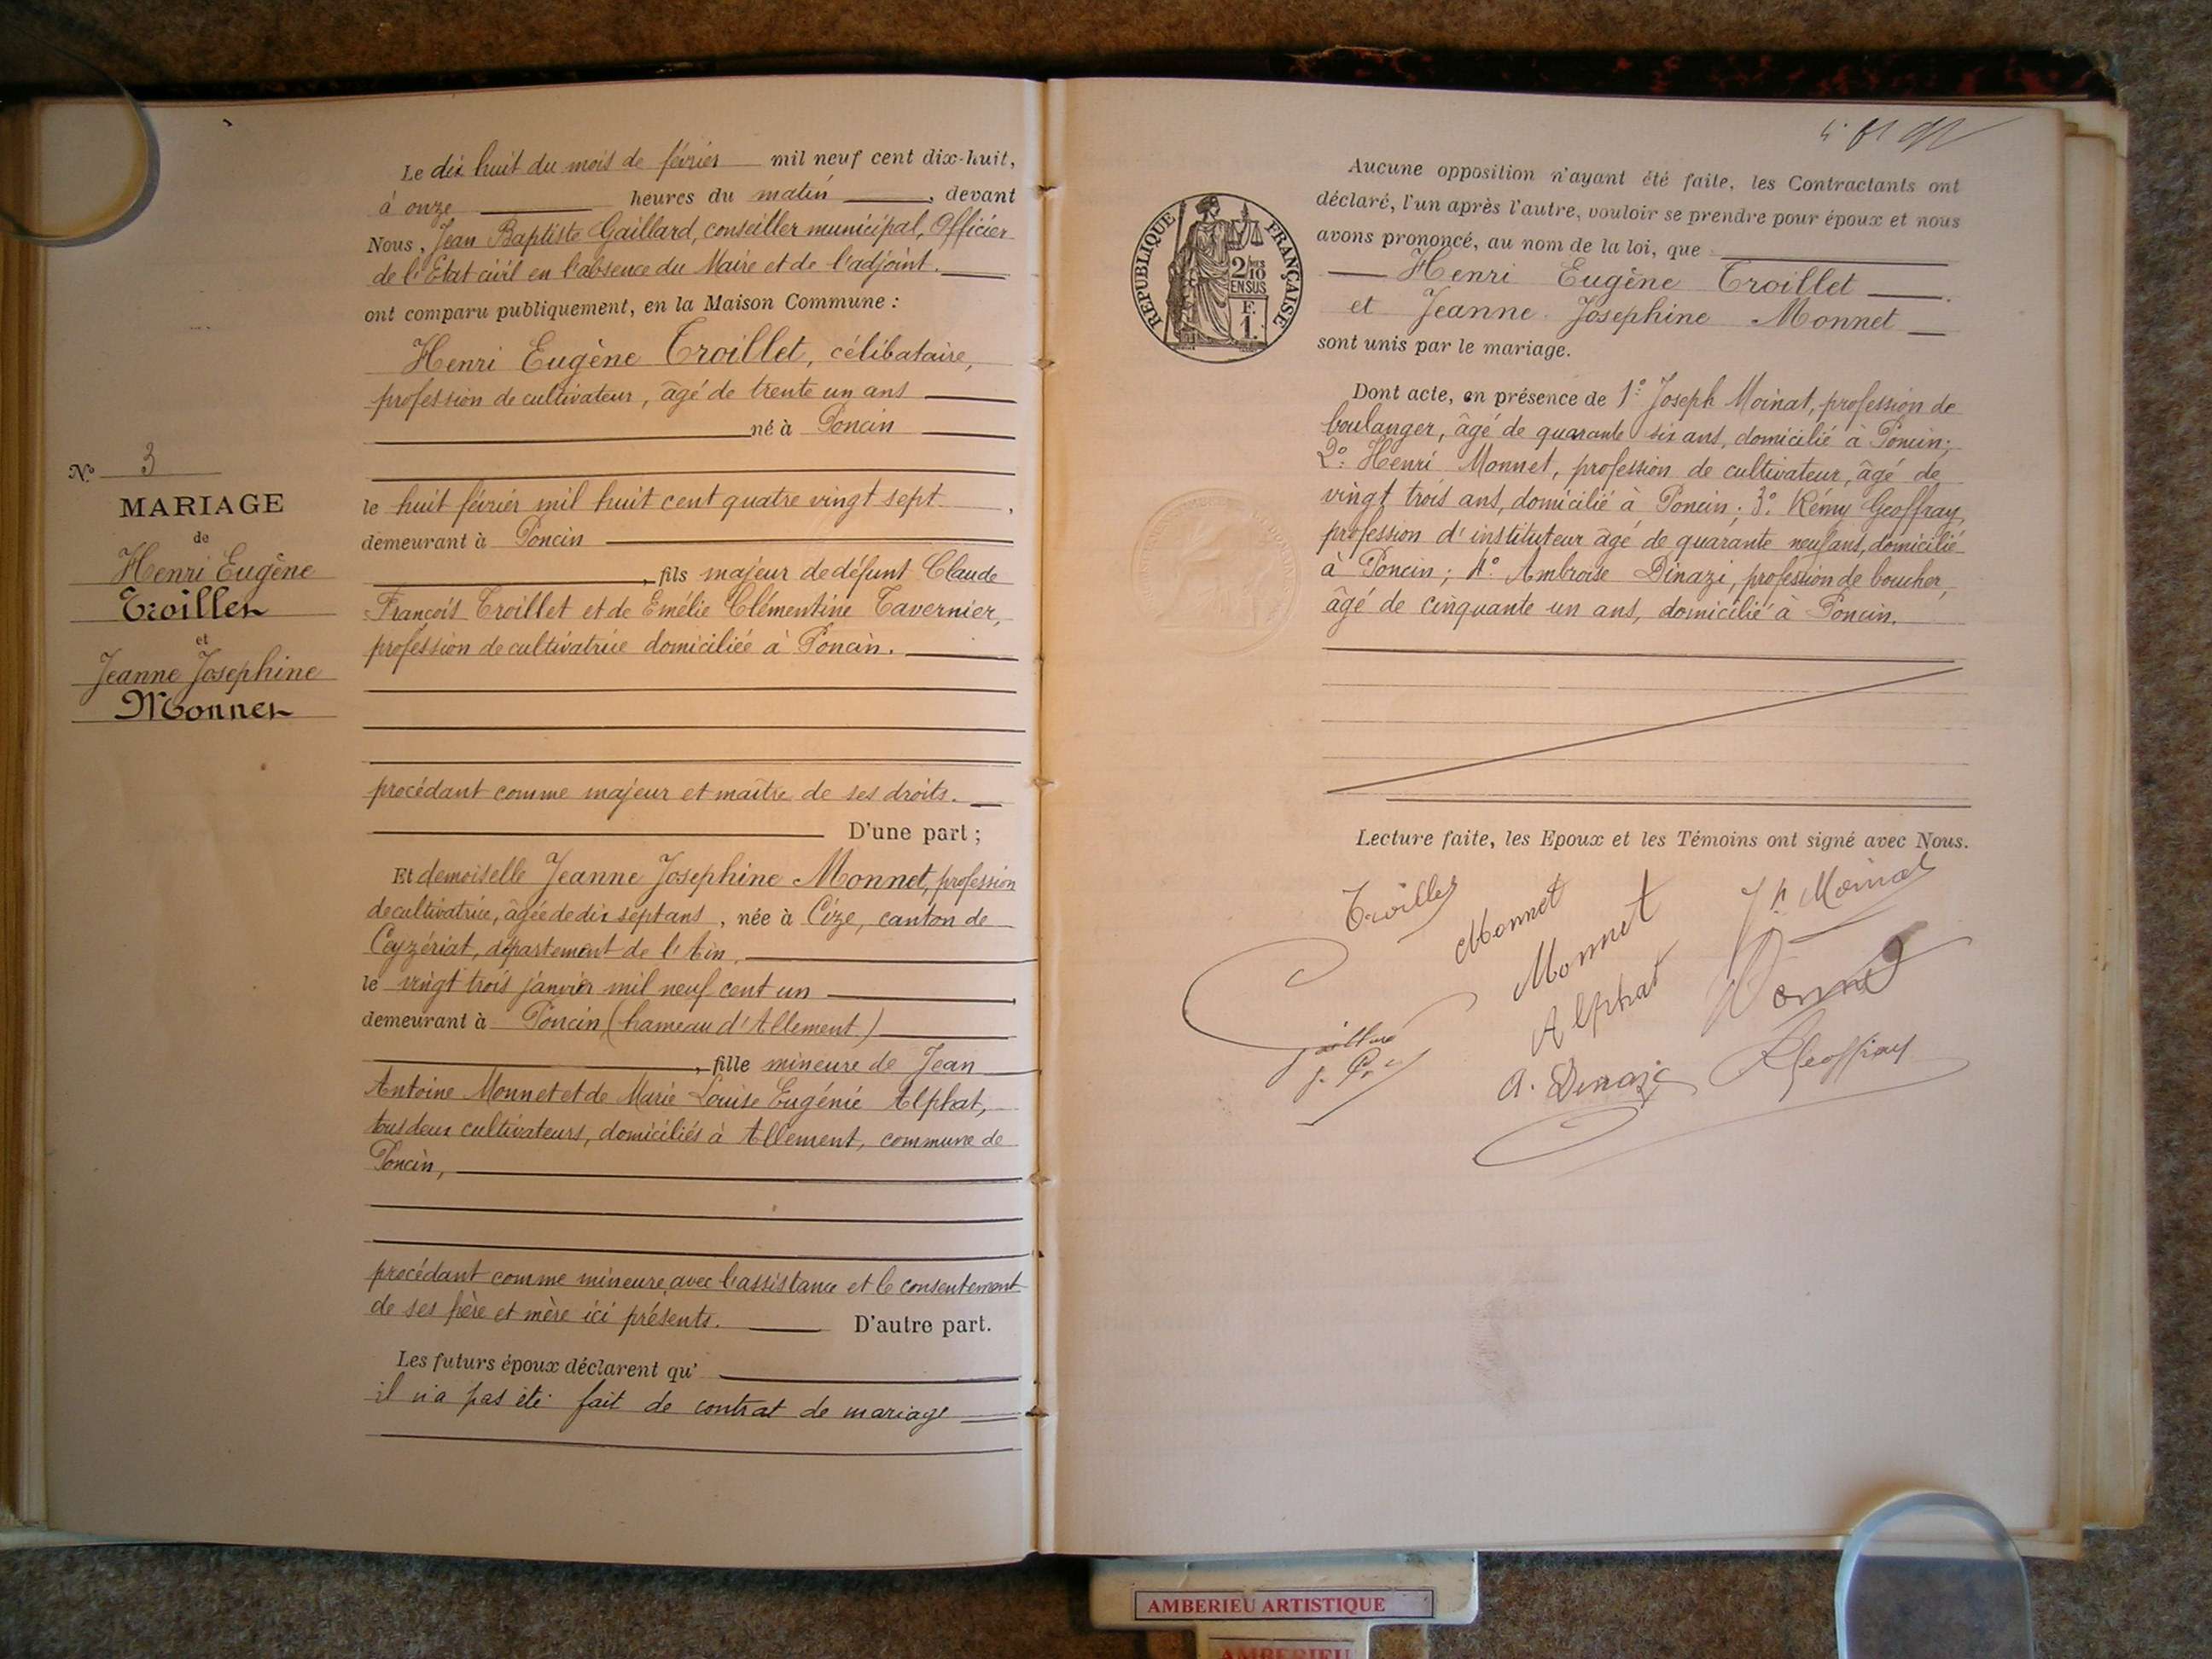 Le dix huit du mois de février mil neuf cent dix-huit,
à onze heures du matin, devant
Nous, Jean Baptiste Gaillard, conseiller municipal, Officier
de l'Etat civil en l'absence du Maire et de l'adjoint.
ont comparu publiquement, en la Maison Commune :
Henri Eugène Troillet, célibataire,
profession de cultivateur, âgé de trente un ans
né à Poncin
le huit février mil huit cent quatre vingt sept,
demeurant à Poncin
, fils majeur de défunt Claude
François Troillet et de Emélie Clémentine Tavernier,
profession de cultivatrice domiciliée à Poncin.
procédant comme majeur et maître de ses droits.
D'une part ;
Et demoiselle Jeanne Josephine Monnet, profession
de cultivatrice, âgée de dix sept ans, née à Cize, canton de
Ceyzériat, département de l'Ain,
le vingt trois janvier mil neuf cent un,
demeurant à Poncin (hameau d'Allement)
, fille mineure de Jean
Antoine Monnet et de Marie Louise Eugénie Alphat,
tous deux cultivateurs, domiciliés à Allement, commune de
Poncin,
procédant comme mineure, avec l'assistance et le consentement
de ses père et mère ici présents. D'autre part.
Les futurs époux déclarent qu'
il n'a pas été fait de contrat de mariage
N° 3
MARIAGE
de
Henri Eugène
Troillet
et
Jeanne Josephine
Monnet
Aucune opposition n'ayant été faite, les Contractants ont
déclaré, l'un après l'autre, vouloir se prendre pour époux et nous
avons prononcé, au nom de la loi, que
Henri Eugène Troillet.
et Jeanne Josephine Monnet
sont unis par le mariage.
Dont acte, en présence de 1° Joseph Moinat, profession de
boulanger, âgé de quarante six ans, domicilié à Poncin;
2° Henri Monnet, profession de cultivateur, âgé de
vingt trois ans, domicilié à Poncin; 3° Rémy Geoffray,
profession d'instituteur âgé de quarante neuf ans, domicilié
à Poncin; 4° Ambroise Dinazi, profession de boucher,
âgé de cinquante un ans, domicilié à Poncin.
Lecture faite, les Epoux et les Témoins ont signé avec Nous.
Troillet
Monnet
Jh Moinat
Monnet
Monnet
Alphat
Gaillard
A. Dinazi
R Geoffray
REPUBLIQUE FRANÇAISE
2/10
EN SUS
F.
1.
AMBERIEU ARTISTIQUE
AMBERIEU